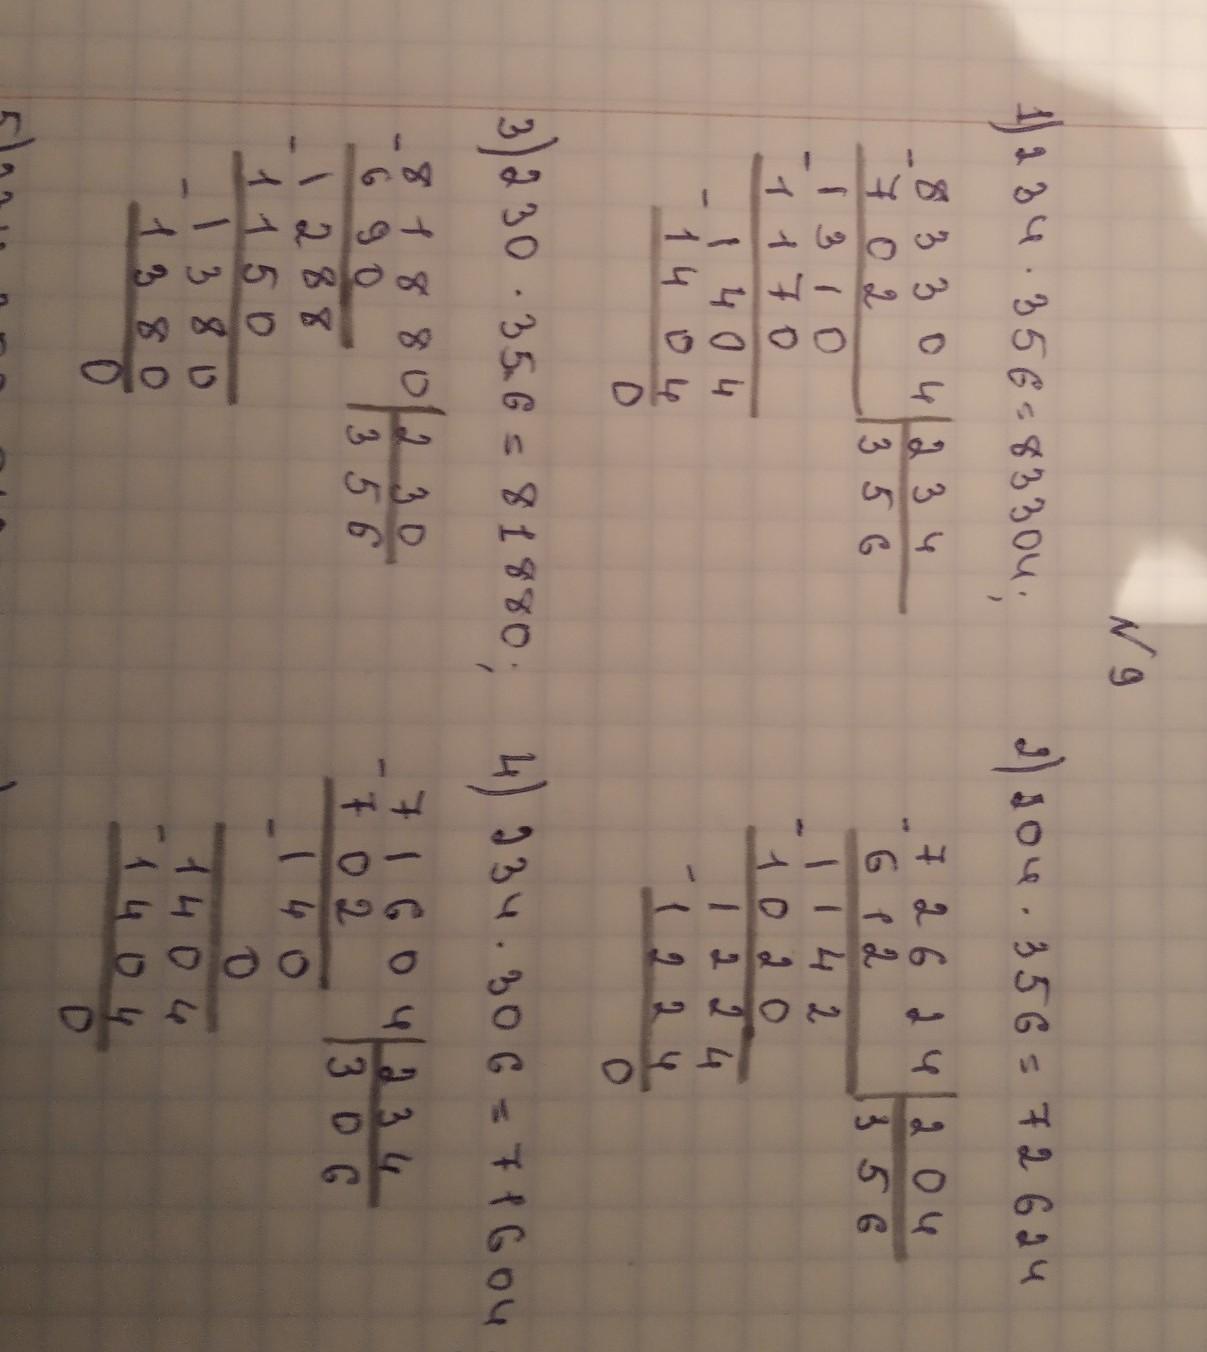 N 9
1) 234 · 356 = 83304;
- 83304 | 234
702 | 356
- 1310
1170
- 1404
1404
0
2) 204 · 356 = 72624
- 72624 | 204
612 | 356
- 1142
1020
- 1224
1224
0
3) 230 · 356 = 81880;
- 81880 | 230
690 | 356
- 1288
1150
- 1380
1380
0
4) 234 · 306 = 71604
- 71604 | 234
702 | 306
- 140
0
- 1404
1404
0
5)